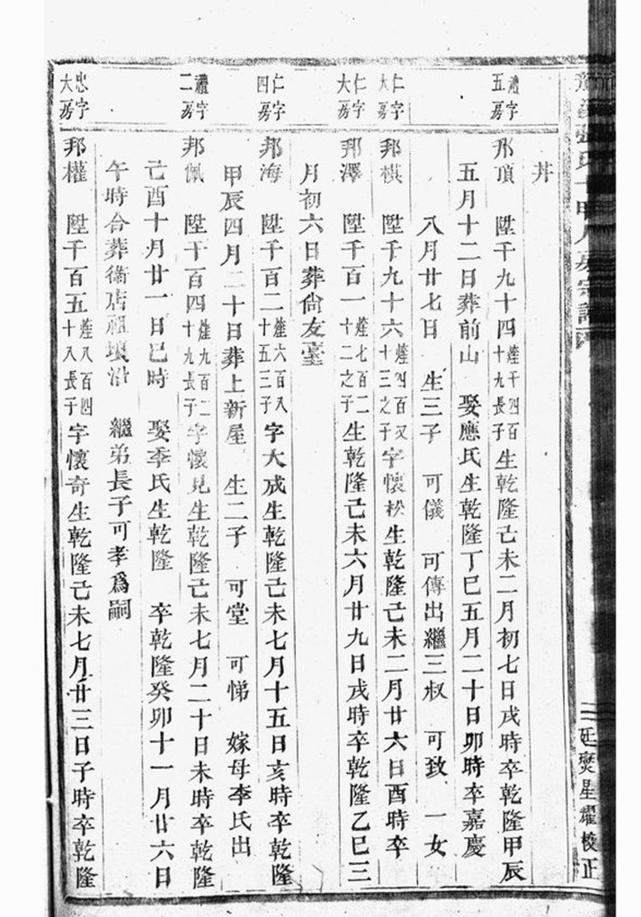 氏十甲八房宗譜
廷爕星耀校正
丼
禮字五房 邦頂 陞千九十四 千四百十九長子 生乾隆己未二月初七日戌時卒乾隆甲辰
五月十二日葬前山 娶應氏生乾隆丁巳五月二十日卯時卒嘉慶
八月廿七日 生三子 可儀 可傳出繼三叔 可致 一女
仁字大房 邦棋 陞千九十六 四百又十三之子 字懷松生乾隆己未二月廿六日酉時卒
仁字大房 邦澤 陞千百一 七百二十二之子 生乾隆己未六月廿九日戌時卒乾隆乙巳三
月初六日葬尙友臺
仁字四房 邦海 陞千百二 六百八十五三子 字大成生乾隆己未七月十五日亥時卒乾隆
甲辰四月二十日葬上新屋 生二子 可堂 可悌 嫁母李氏出
禮字二房 邦佩 陞千百四 九百二十九長子 字懷見生乾隆己未七月二十日未時卒乾隆
己酉十月廿一日巳時 娶季氏生乾隆 卒乾隆癸卯十一月廿六日
午時合葬衞店祖墳沿 繼弟長子可孝爲嗣
忠字大房 邦權 陞千百五 八百四十八長子 字懷奇生乾隆己未七月廿三日子時卒乾隆